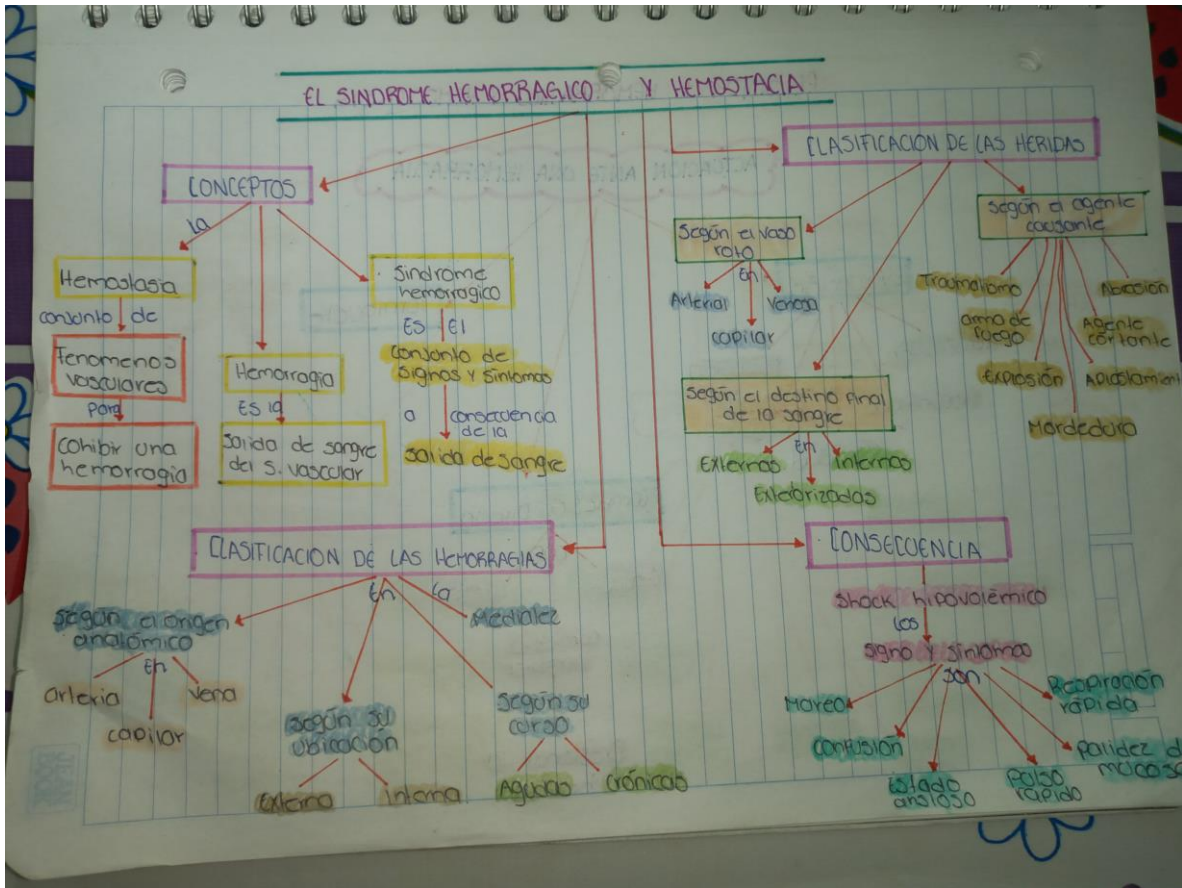 EL SINDROME HEMORRAGICO Y HEMOSTACIA
CONCEPTOS
la
Hemostasia
conjunto de
Fenomenos
vasculares
para
cohibir una
hemorragia
Hemorragia
ES la
Salida de sangre
del S. vascular
Sindrome
hemorragico
ES El
conjunto de
signos y sintomas
a consecuencia
de la
salida de sangre
CLASIFICACION DE LAS HERIDAS
Según el vaso
roto
En
Arterial
Venosa
capilar
Según el destino final
de la sangre
En
Externas
Internas
Exteriorizadas
Según el agente
causante
Traumatismo
arma de
fuego
Explosión
Mordedura
Agente
cortante
Aplastamient
CLASIFICACION DE LAS HEMORRAGIAS
En
la
Según el origen
anatómico
En
arteria
vena
capilar
Según su
ubicación
Externa
Interna
Según su
curso
Agudas
Crónicas
CONSECUENCIA
Shock hipovolémico
los
signo y sintomas
son
Mareo
confusión
Estado
ansioso
Pulso
rapido
palidez d
mucosa
Respiración
rápida